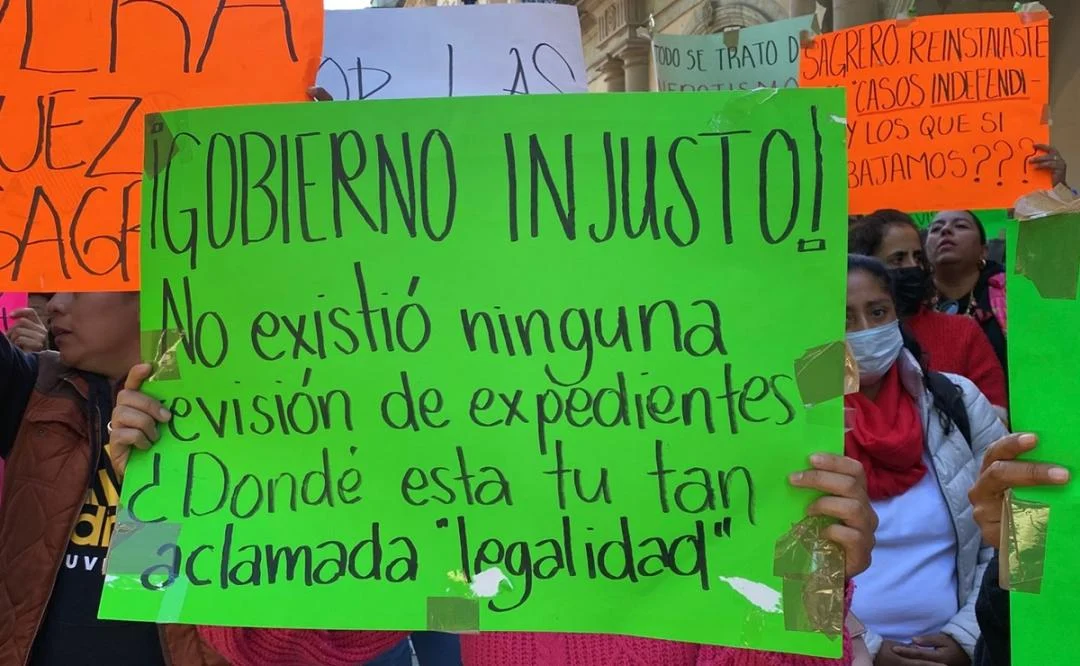 UEZ
SAGR
POR LAS
TODO SE TRATO D
NEPOTISMO
SAGRERO. REINSTALASTE
"CASOS INDEFENDI-
Y LOS QUE SI
BAJAMOS???
¡GOBIERNO INJUSTO!
No existió ninguna
revisión de expedientes
¿Dondé esta tu tan
aclamada "legalidad"